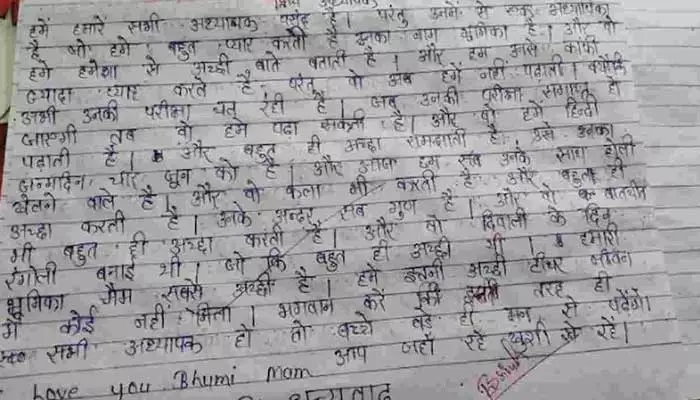 प्रिय अध्यापक
हमें हमारे सभी अध्यापक पसंद है। परंतु उनमें से एक अध्यापिका
है जो हमें बहुत प्यार करती है उनका नाम भूमिका है। और वो
हमें हमेशा से अच्छी बातें बताती है। और हम उनसे काफी
ज्यादा प्यार करते है परंतु वो अब हमें नहीं पढ़ाती। क्योंकि
अभी उनकी परीक्षा चल रही है। जब उनकी परीक्षा समाप्त हो
जाएगी तब वो हमें पढ़ा सकती है। और वो हमें हिन्दी
पढ़ाती है। और बहुत ही अच्छा समझाती है। उनका
जन्मदिन चार जून को है। और आज हम सब उनके साथ होली
खेलने वाले है। और वो कला भी करती है और बहुत ही
अच्छा करती है। उनके अन्दर सब गुण है। और वो बातचीत
भी बहुत ही अच्छा करती है। और वो दिवाली के दिन
रंगोली बनाई थी। जो कि बहुत ही अच्छी थी। हमारी
भूमिका मैम सबसे अच्छी है। हमें इतनी अच्छी टीचर जीवन
में कोई नहीं मिला। भगवान करें कि इसी तरह ही
सभी अध्यापक हो तो बच्चे बड़े ही मन से पढ़ेंगे।
आप जहाँ रहें खुशी से रहें।
love you Bhumi Mam
धन्यवाद